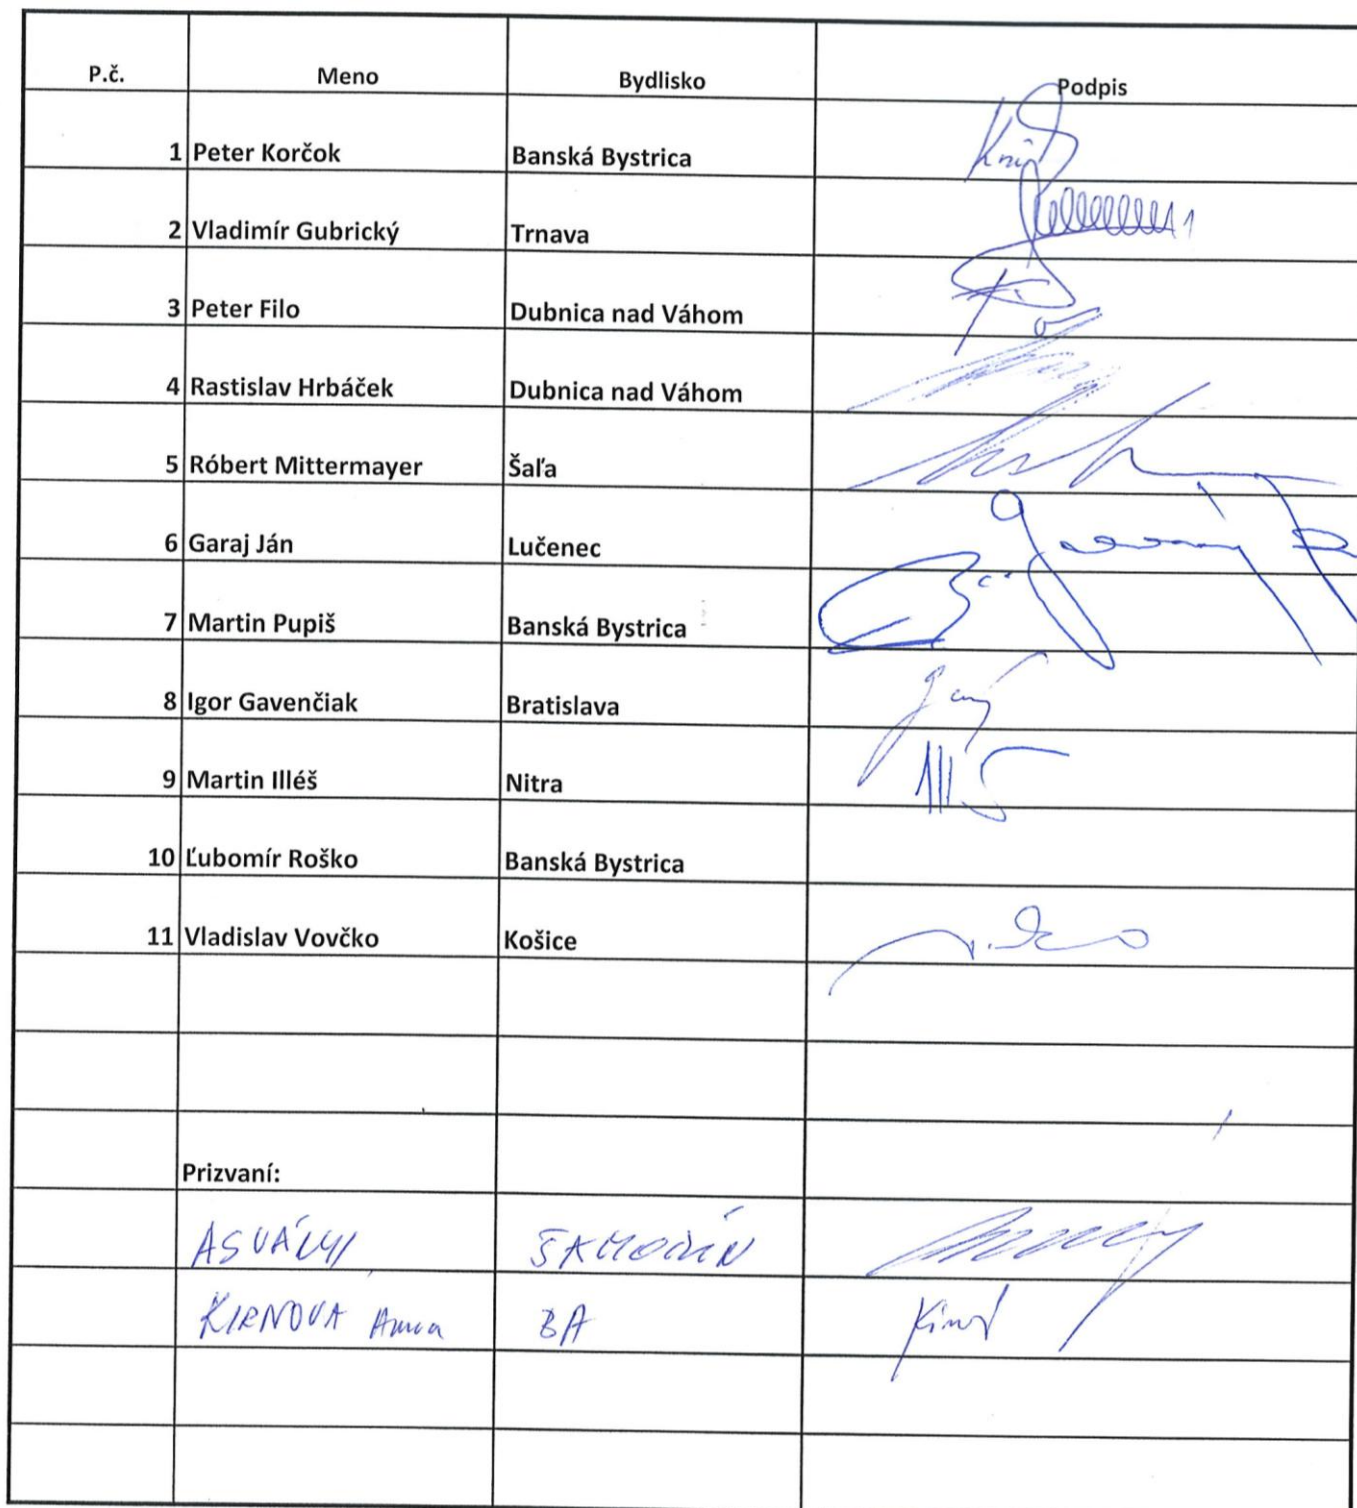 P.č. Meno Bydlisko Podpis
1 Peter Korčok Banská Bystrica
2 Vladimír Gubrický Trnava
3 Peter Filo Dubnica nad Váhom
4 Rastislav Hrbáček Dubnica nad Váhom
5 Róbert Mittermayer Šaľa
6 Garaj Ján Lučenec
7 Martin Pupiš Banská Bystrica
8 Igor Gavenčiak Bratislava
9 Martin Illéš Nitra
10 Ľubomír Roško Banská Bystrica
11 Vladislav Vovčko Košice
Prizvaní:
ASVÁNYI ŠAMORÍN
KIRNOVA Anna BA